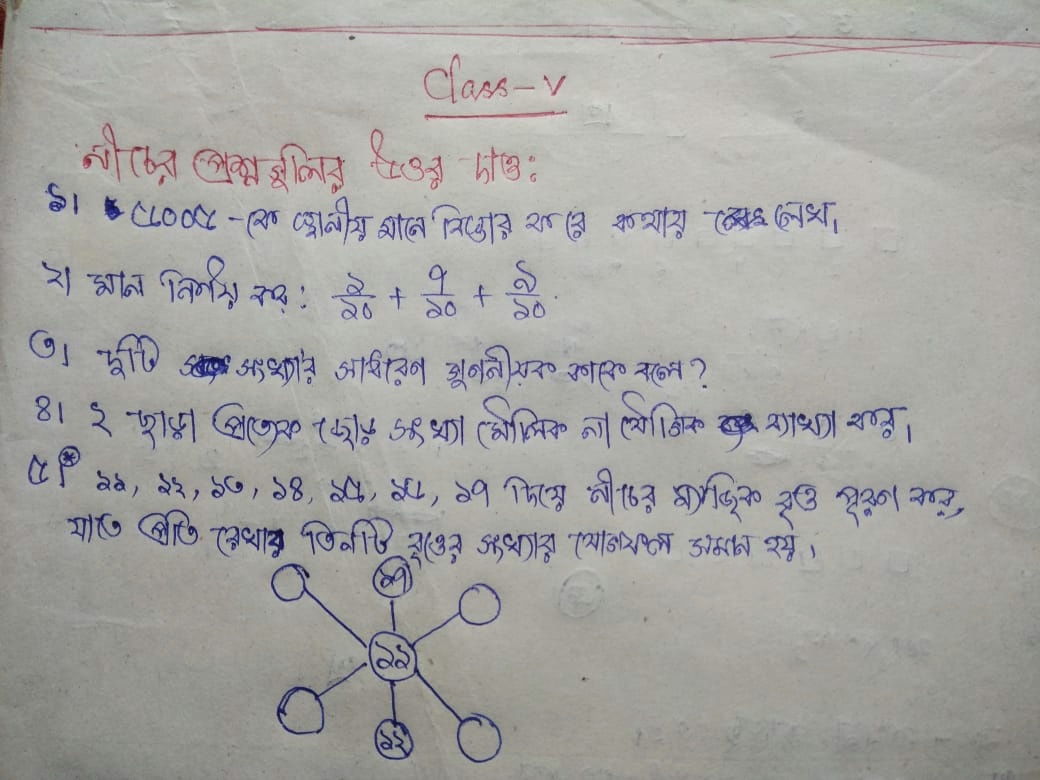 Class - V
নীচের প্রশ্নগুলির উওর দাও:
১। ৫৬০০৫ - কে স্থানীয় মানে বিস্তার করে কথায় লেখ।
২। মান নির্ণয় কর: ১/১০ + ৭/১০ + ৯/১০
৩। দুটি সংখ্যার সাধারণ গুণনীয়ক কাকে বলে?
৪। ২ ছাড়া প্রত্যেক জোড় সংখ্যা মৌলিক না যৌগিক ব্যাখ্যা কর।
৫।* ১১, ১২, ১৩, ১৪, ১৫, ১৬, ১৭ দিয়ে নীচের ম্যাজিক বৃত্ত পূরণ কর,
যাতে প্রতি রেখার তিনটি বৃত্তের সংখ্যার যোগফল সমান হয়।
১৭
১১
১২